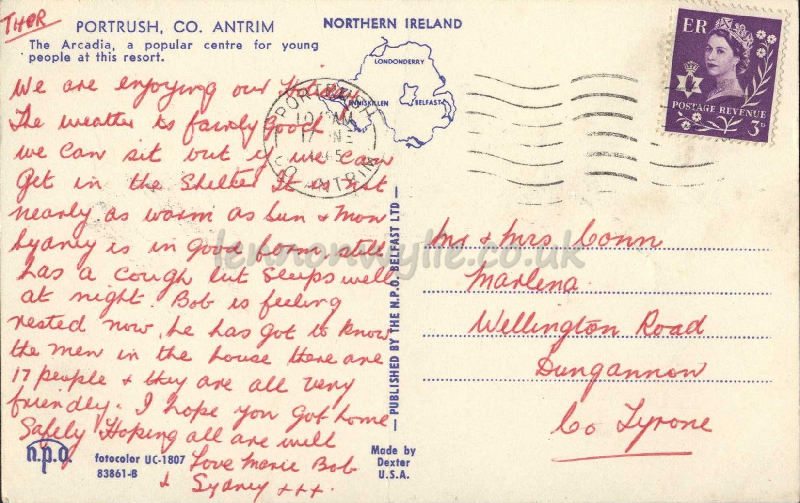 THOR
PORTRUSH, CO. ANTRIM
The Arcadia, a popular centre for young
people at this resort.
NORTHERN IRELAND
LONDONDERRY
ENNISKILLEN
BELFAST
ER
POSTAGE REVENUE
3D
PORTRUSH
CO ANTRIM
We are enjoying our Holiday
The weather is fairly Good
we can sit out if we can
Get in the Shelter It is not
nearly as warm as Sun & Mon
Sydney is in good form. still
has a cough but Sleeps well
at night. Bob is feeling
rested now, he has got to know
the men in the house there are
17 people & they are all very
friendly. I hope you Got home
Safely Hoping all are well
Love Marie Bob
& Sydney +++.
Mr & Mrs Conn
Marlena
Wellington Road
Dungannon
Co Tyrone
— PUBLISHED BY THE N.P.O. BELFAST LTD —
n.p.o.
fotocolor UC-1807
83861-B
Made by
Dexter
U.S.A.
lennonwylie.co.uk